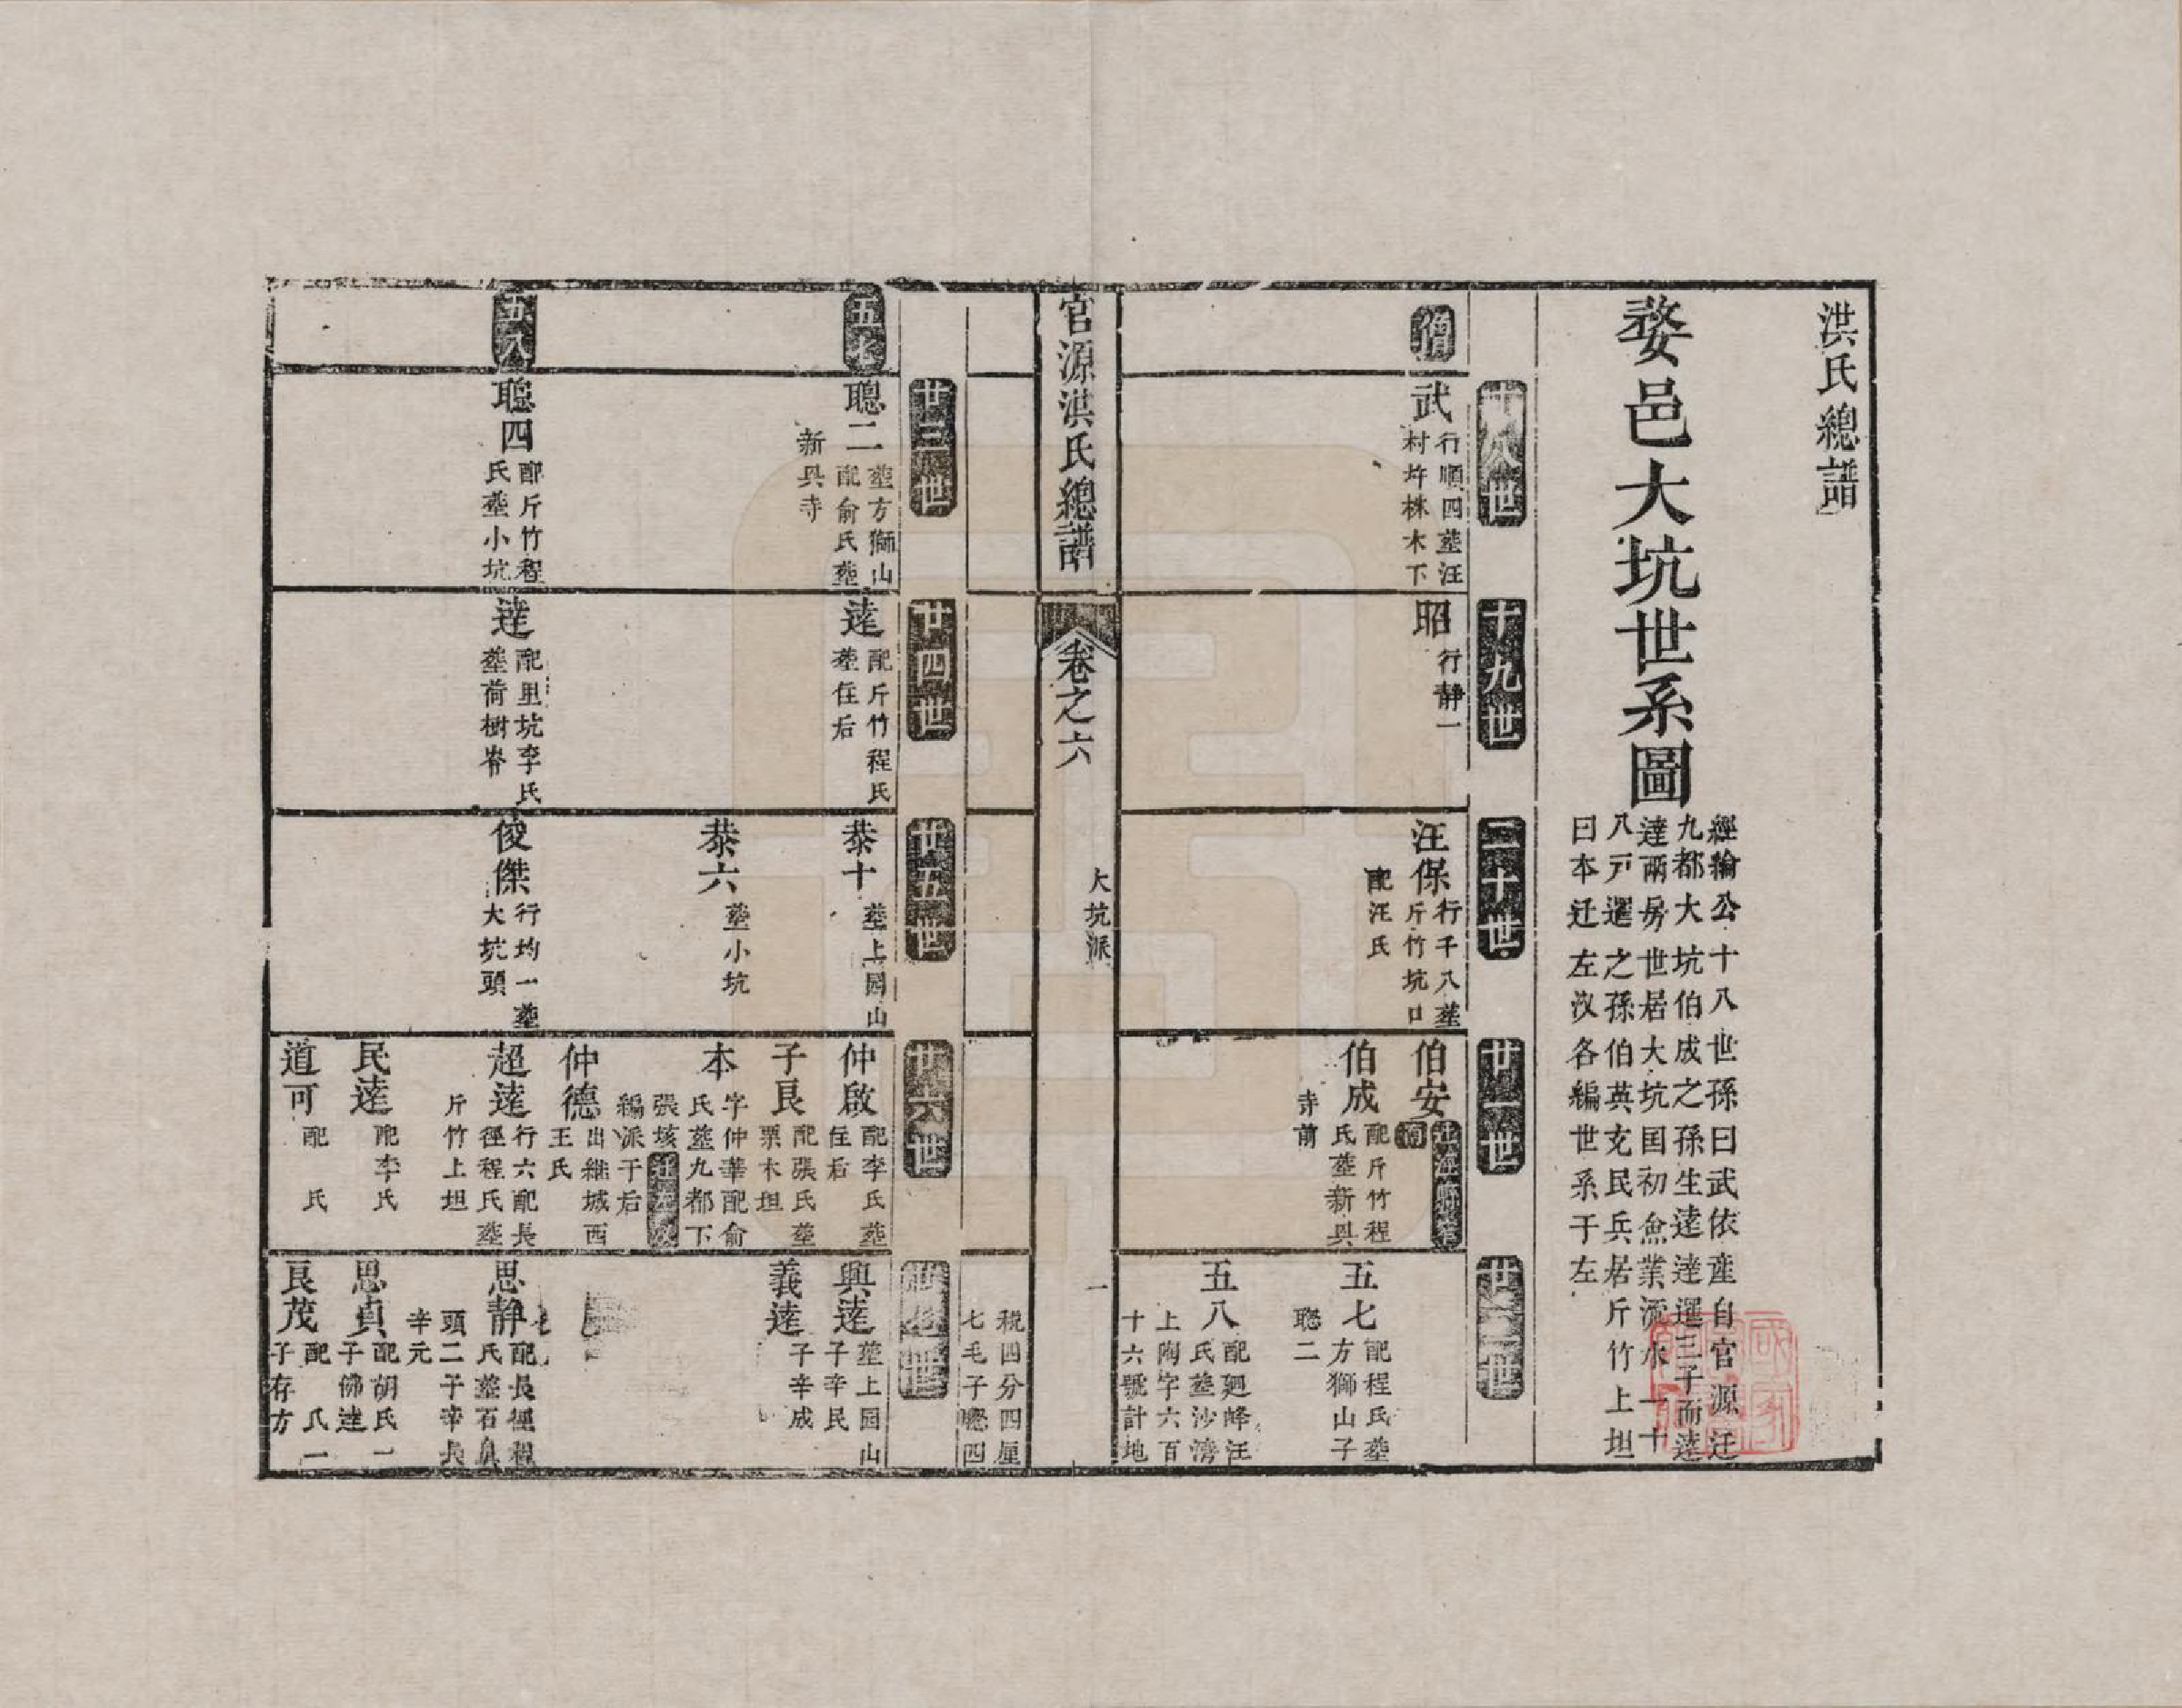 洪氏總譜
婺邑大坑世系圖
經綸公十八世孫曰武依產自官源迁
九都大坑伯成之孫生逵達暹三子而逵
達兩房世居大坑国初魚業流水一十
八戸暹之孫伯英玄民兵居斤竹上坦
曰本迁左汊各編世系于左
十八世
十九世
二十世
廿一世
廿二世
僧
武
行順四塟汪
村圲株木下
昭
行靜一
汪保
行千八塟
斤竹坑口
配汪氏
伯安
伯成
配斤竹程
氏塟新㒷
寺前
五七
配程氏塟
方獅山子
聰二
五八
配廻峰汪
氏塟沙灣
上陶字六百
十六號計地
官源洪氏總譜
卷之六
大坑派
一
稅四分四厘
七毛子聰四
廿三世
廿四世
廿五世
廿六世
廿七世
五七
聰二
塟方獅山
配俞氏塟
新㒷寺
逵
配斤竹程氏
塟住后
恭十
塟上園山
恭六
塟小坑
仲啟
配李氏塟
住后
子良
配張氏塟
栗木坦
本
字仲華配俞
氏塟九都下
張垓迁左汊
編派于后
仲德
出繼城西
王氏
興逵
塟上园山
子辛民
義逵
子辛成
五八
聰四
配斤竹程
氏塟小坑
達
配里坑李氏
塟荷樹崙
俊傑
行均一塟
大坑頭
超逵
行六配長
徑程氏塟
斤竹上坦
民逵
配李氏
道可
配 氏
思靜
配長徑程
氏塟石鼻
頭二子辛兵
辛元
思貞
配胡氏一
子佛逹
良茂
配 氏一
子存方